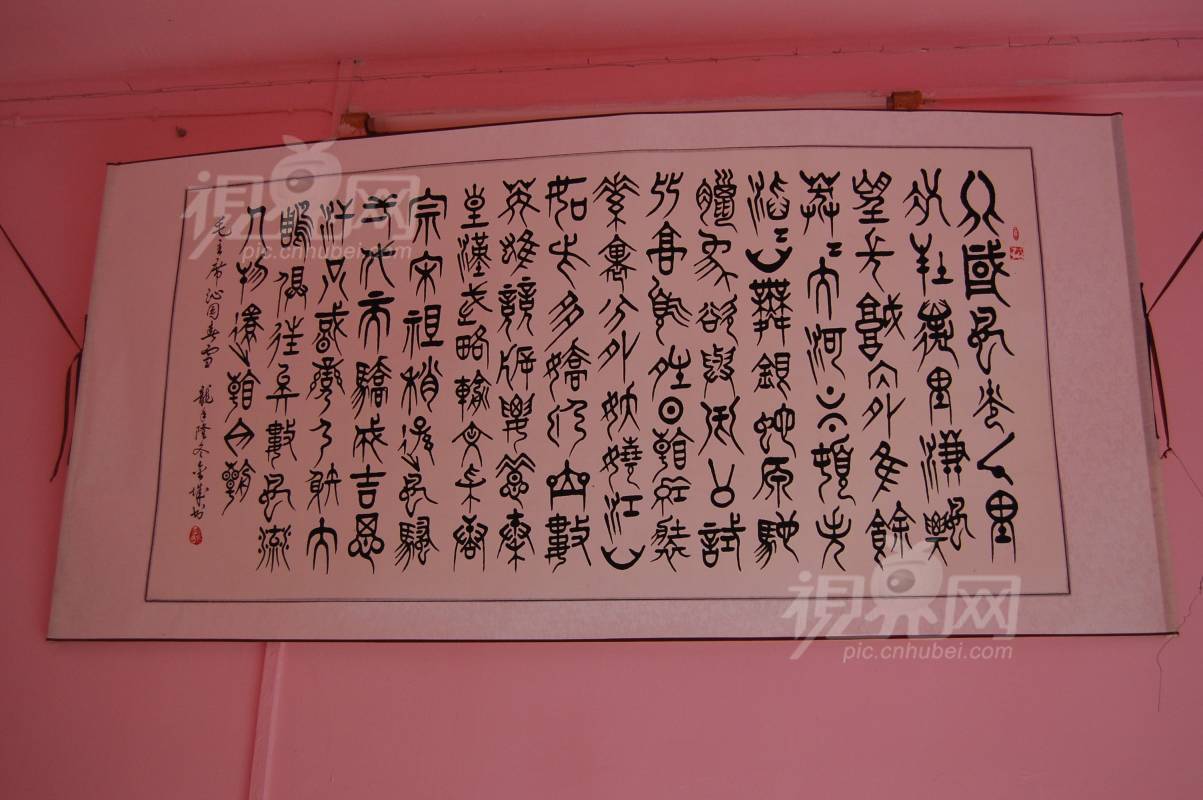 北國風光千里
冰封萬里雪飄
望長城內外惟餘
莽莽大河上下頓失
滔滔山舞銀蛇原馳
蠟象欲與天公試
比高須晴日看紅裝
素裹分外妖嬈江山
如此多嬌引無數
英雄競折腰惜秦
皇漢武略輸文采唐
宗宋祖稍遜風騷
一代天驕成吉思
汗只識彎弓射大
雕俱往矣數風流
人物還看今朝
毛主席沁園春雪 龍年隆冬
視界网
pic.cnhubei.com
視界网
pic.cnhubei.com